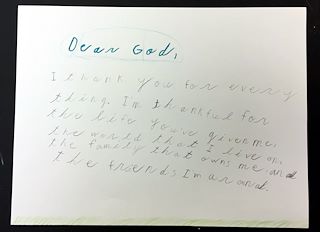 Dear God,
I thank you for every
thing. I'm thankful for
the life you've given me,
the world that I live on,
the family that owns me and
the friends I'm around.